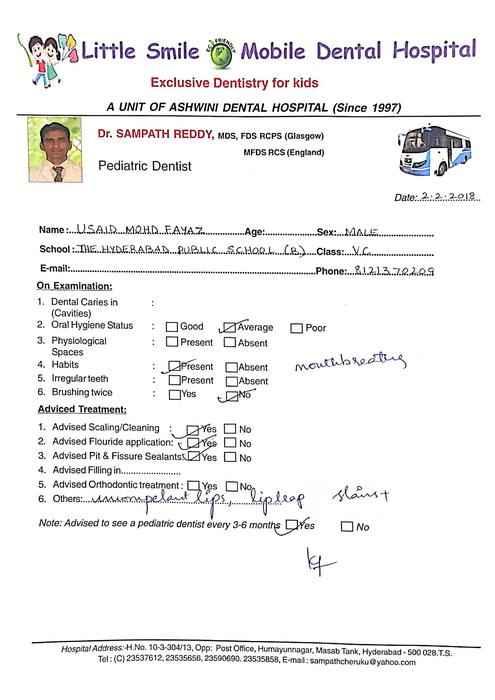 Little Smile ECO FRIENDLY Mobile Dental Hospital
Exclusive Dentistry for kids
A UNIT OF ASHWINI DENTAL HOSPITAL (Since 1997)
Dr. SAMPATH REDDY, MDS, FDS RCPS (Glasgow)
MFDS RCS (England)
Pediatric Dentist
Date: 2.2.2018
Name: USAID MOHD FAYAZ Age: Sex: MALE
School: THE HYDERABAD PUBLIC SCHOOL (R.) Class: V.C
E-mail: Phone: 8121370209
On Examination:
1. Dental Caries in :
(Cavities)
2. Oral Hygiene Status : Good Average Poor
3. Physiological : Present Absent
Spaces
4. Habits : Present Absent mouthbreating
5. Irregular teeth : Present Absent
6. Brushing twice : Yes No
Adviced Treatment:
1. Advised Scaling/Cleaning : Yes No
2. Advised Flouride application: Yes No
3. Advised Pit & Fissure Sealants: Yes No
4. Advised Filling in
5. Advised Orthodontic treatment : Yes No
6. Others: lips, stains+
Note: Advised to see a pediatric dentist every 3-6 months Yes No
Hospital Address:-H.No. 10-3-304/13, Opp: Post Office, Humayunnagar, Masab Tank, Hyderabad - 500 028.T.S.
Tel : (C) 23537612, 23535656, 23590690. 23535858, E-mail : sampathcheruku@yahoo.com